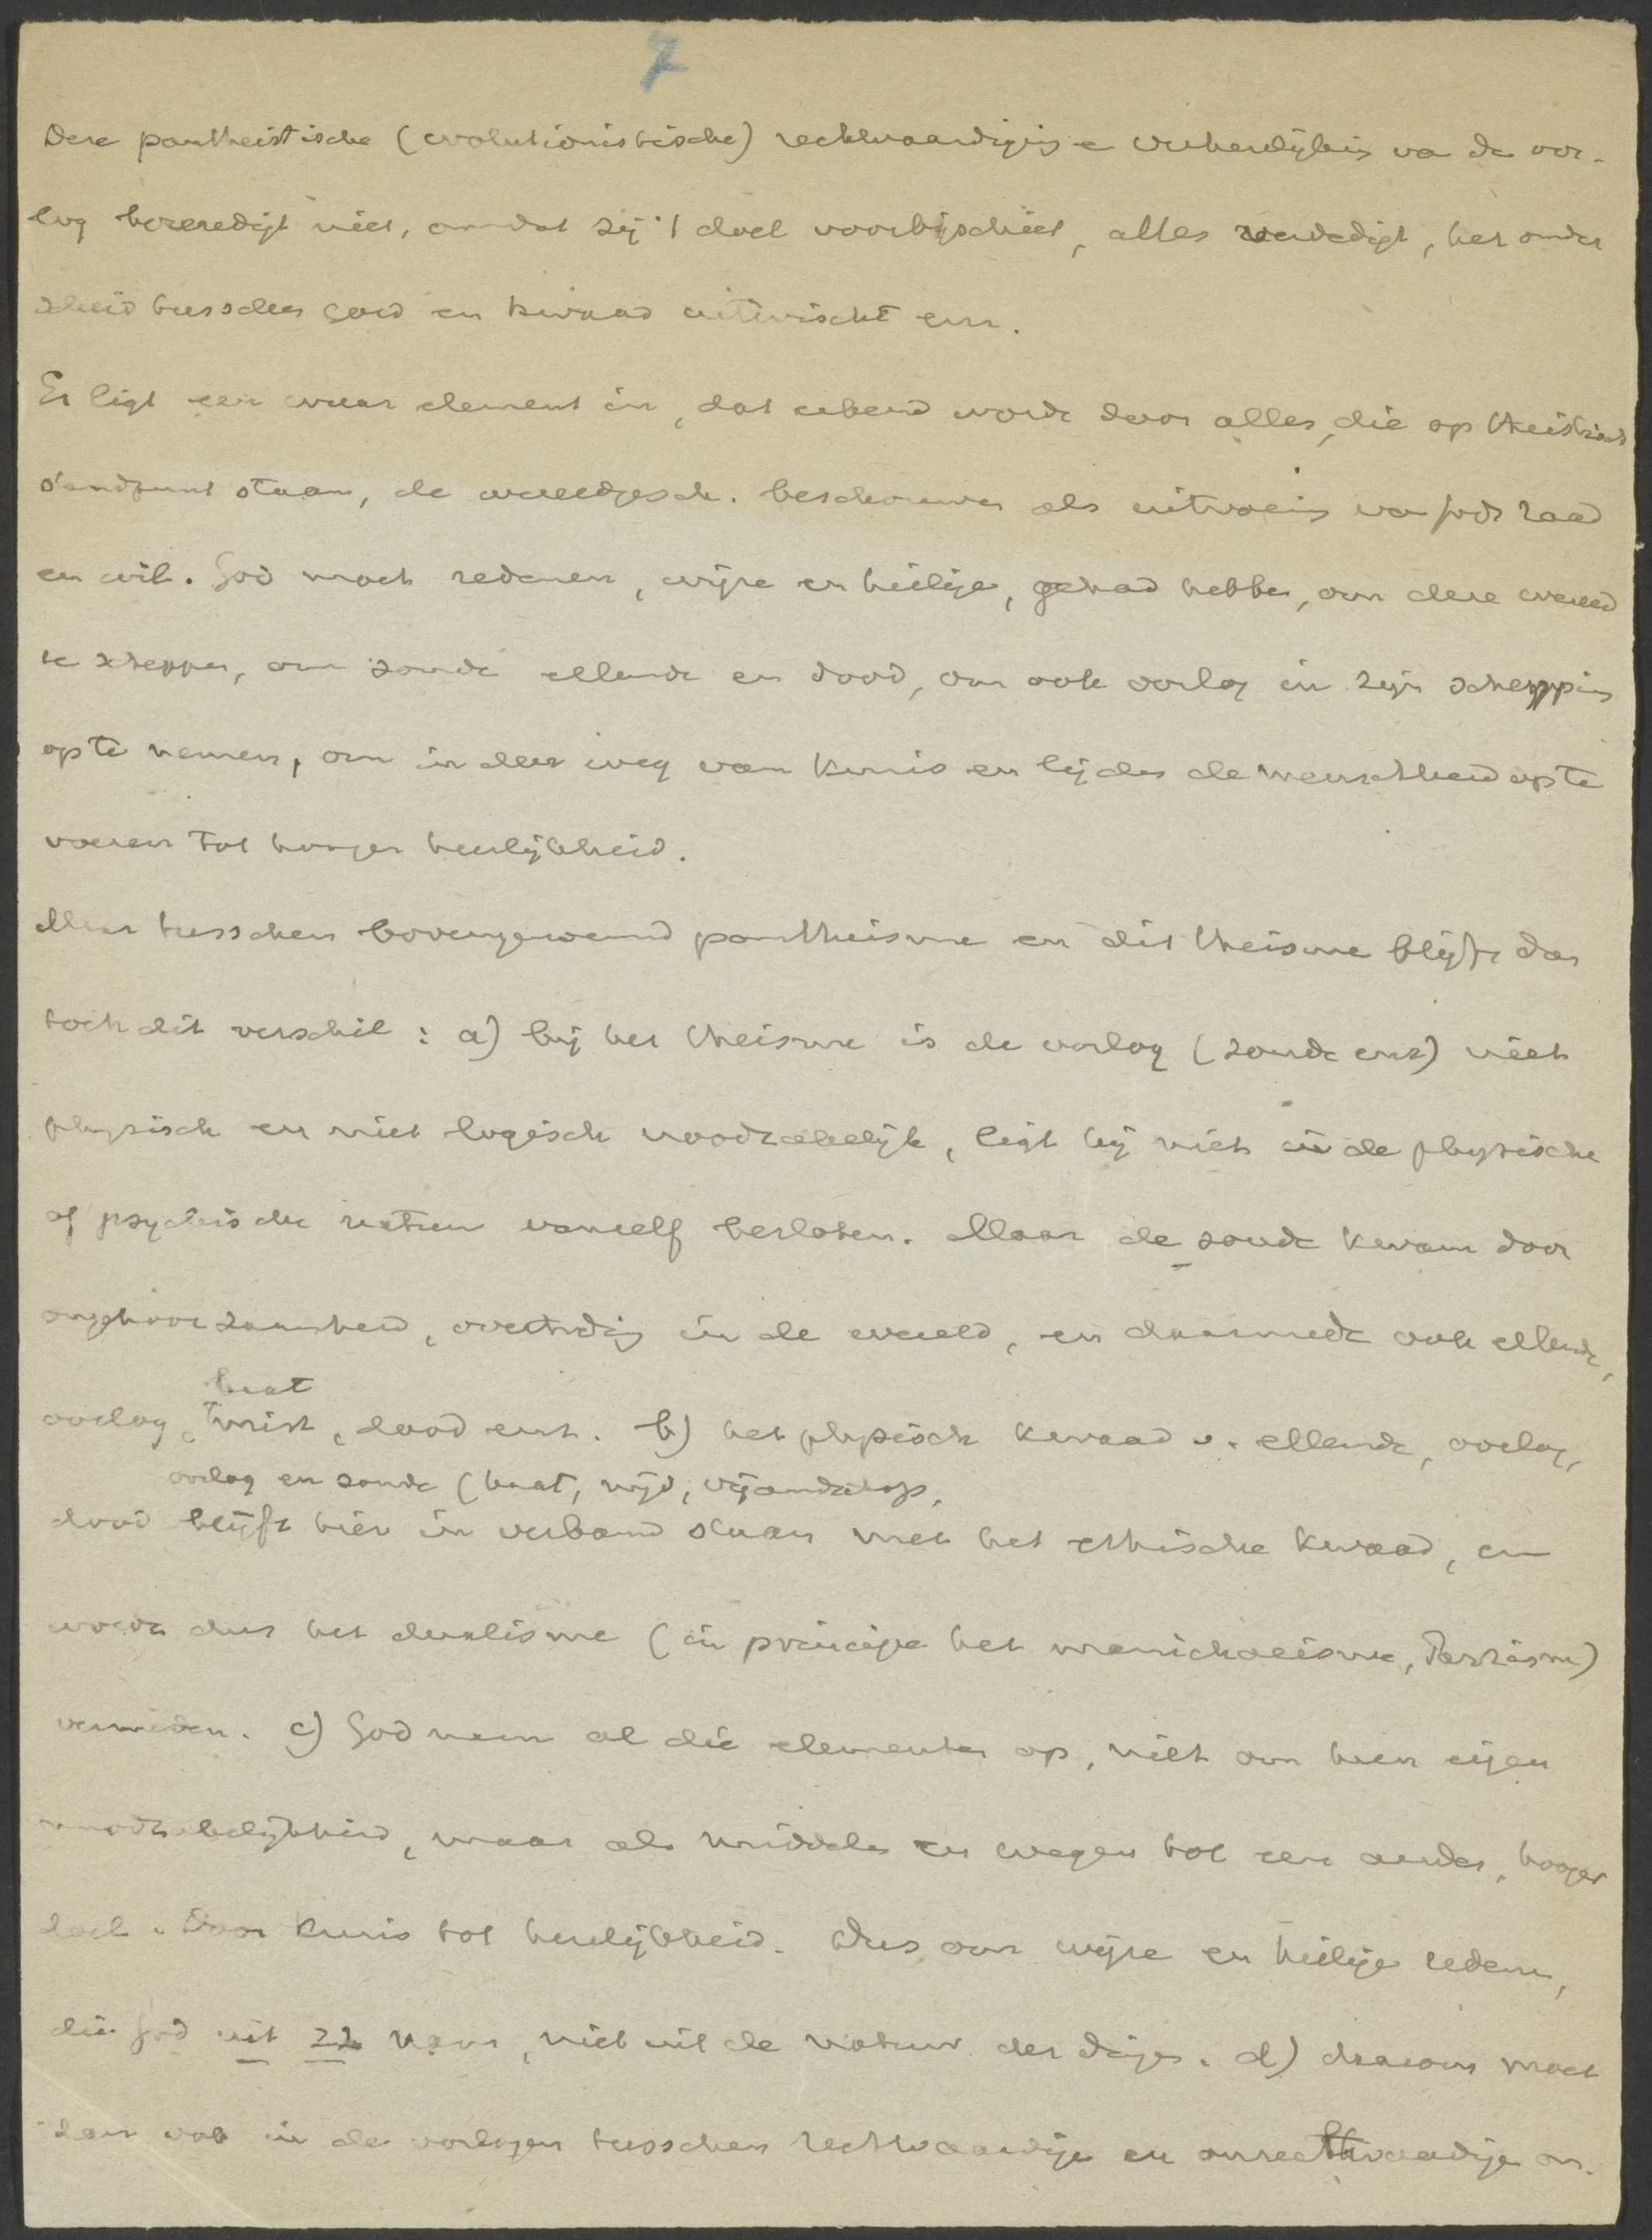 7
Deze pantheistische (evolutionistische) rechtvaardiging e verheerlijking va de oor-
log bevredigt niet, omdat zij 't doel voorbijschiet, alles verdedigt, het onder
scheid tusschen goed en kwaad uitwischt enz.
Er ligt een waar element in, dat erkend wordt door allen, die op theistisch
standpunt staan, de wereldgesch. beschouwen als uitvoering van Gods raad
en wil. God moet redenen, wijze en heilige, gehad hebben, om deze wereld
te scheppen, om zonde ellende en dood, om ook oorlog in zijn schepping
op te nemen, om in den weg van kruis en lijden de menschheid op te
voeren tot hooger heerlijkheid.
Maar tusschen bovengenoemd pantheisme en dit theisme blijft dan
toch dit verschil: a) bij het theisme is de oorlog (zonde enz) niet
physisch en niet logisch noodzakelijk, ligt hij niet in de physische
of psychische natuur vanzelf besloten. Maar de zonde kwam door
ongehoorzaamheid, overtreding in de wereld, en daarmede ook ellende,
haat
oorlog, twist, dood enz. b) het physisch kwaad v. ellende, oorlog,
oorlog en zonde (haat, nijd, vijandschap,
dood blijft hier in verband staan met het ethische kwaad, en
wordt dus het dualisme (in principe het manichaeisme, Parzism)
vermeden. c) God nam al die elementen op, niet om hun eigen
noodzakelijkheid, maar als middelen en wegen tot een ander, hooger
doel. Door kruis tot heerlijkheid. Dus om wijze en heilige redenen,
die God uit zich nam, niet uit de natuur der dingen. d) daarom moet
dan ook in de oorlogen tusschen rechtvaardige en onrechtvaardige on-